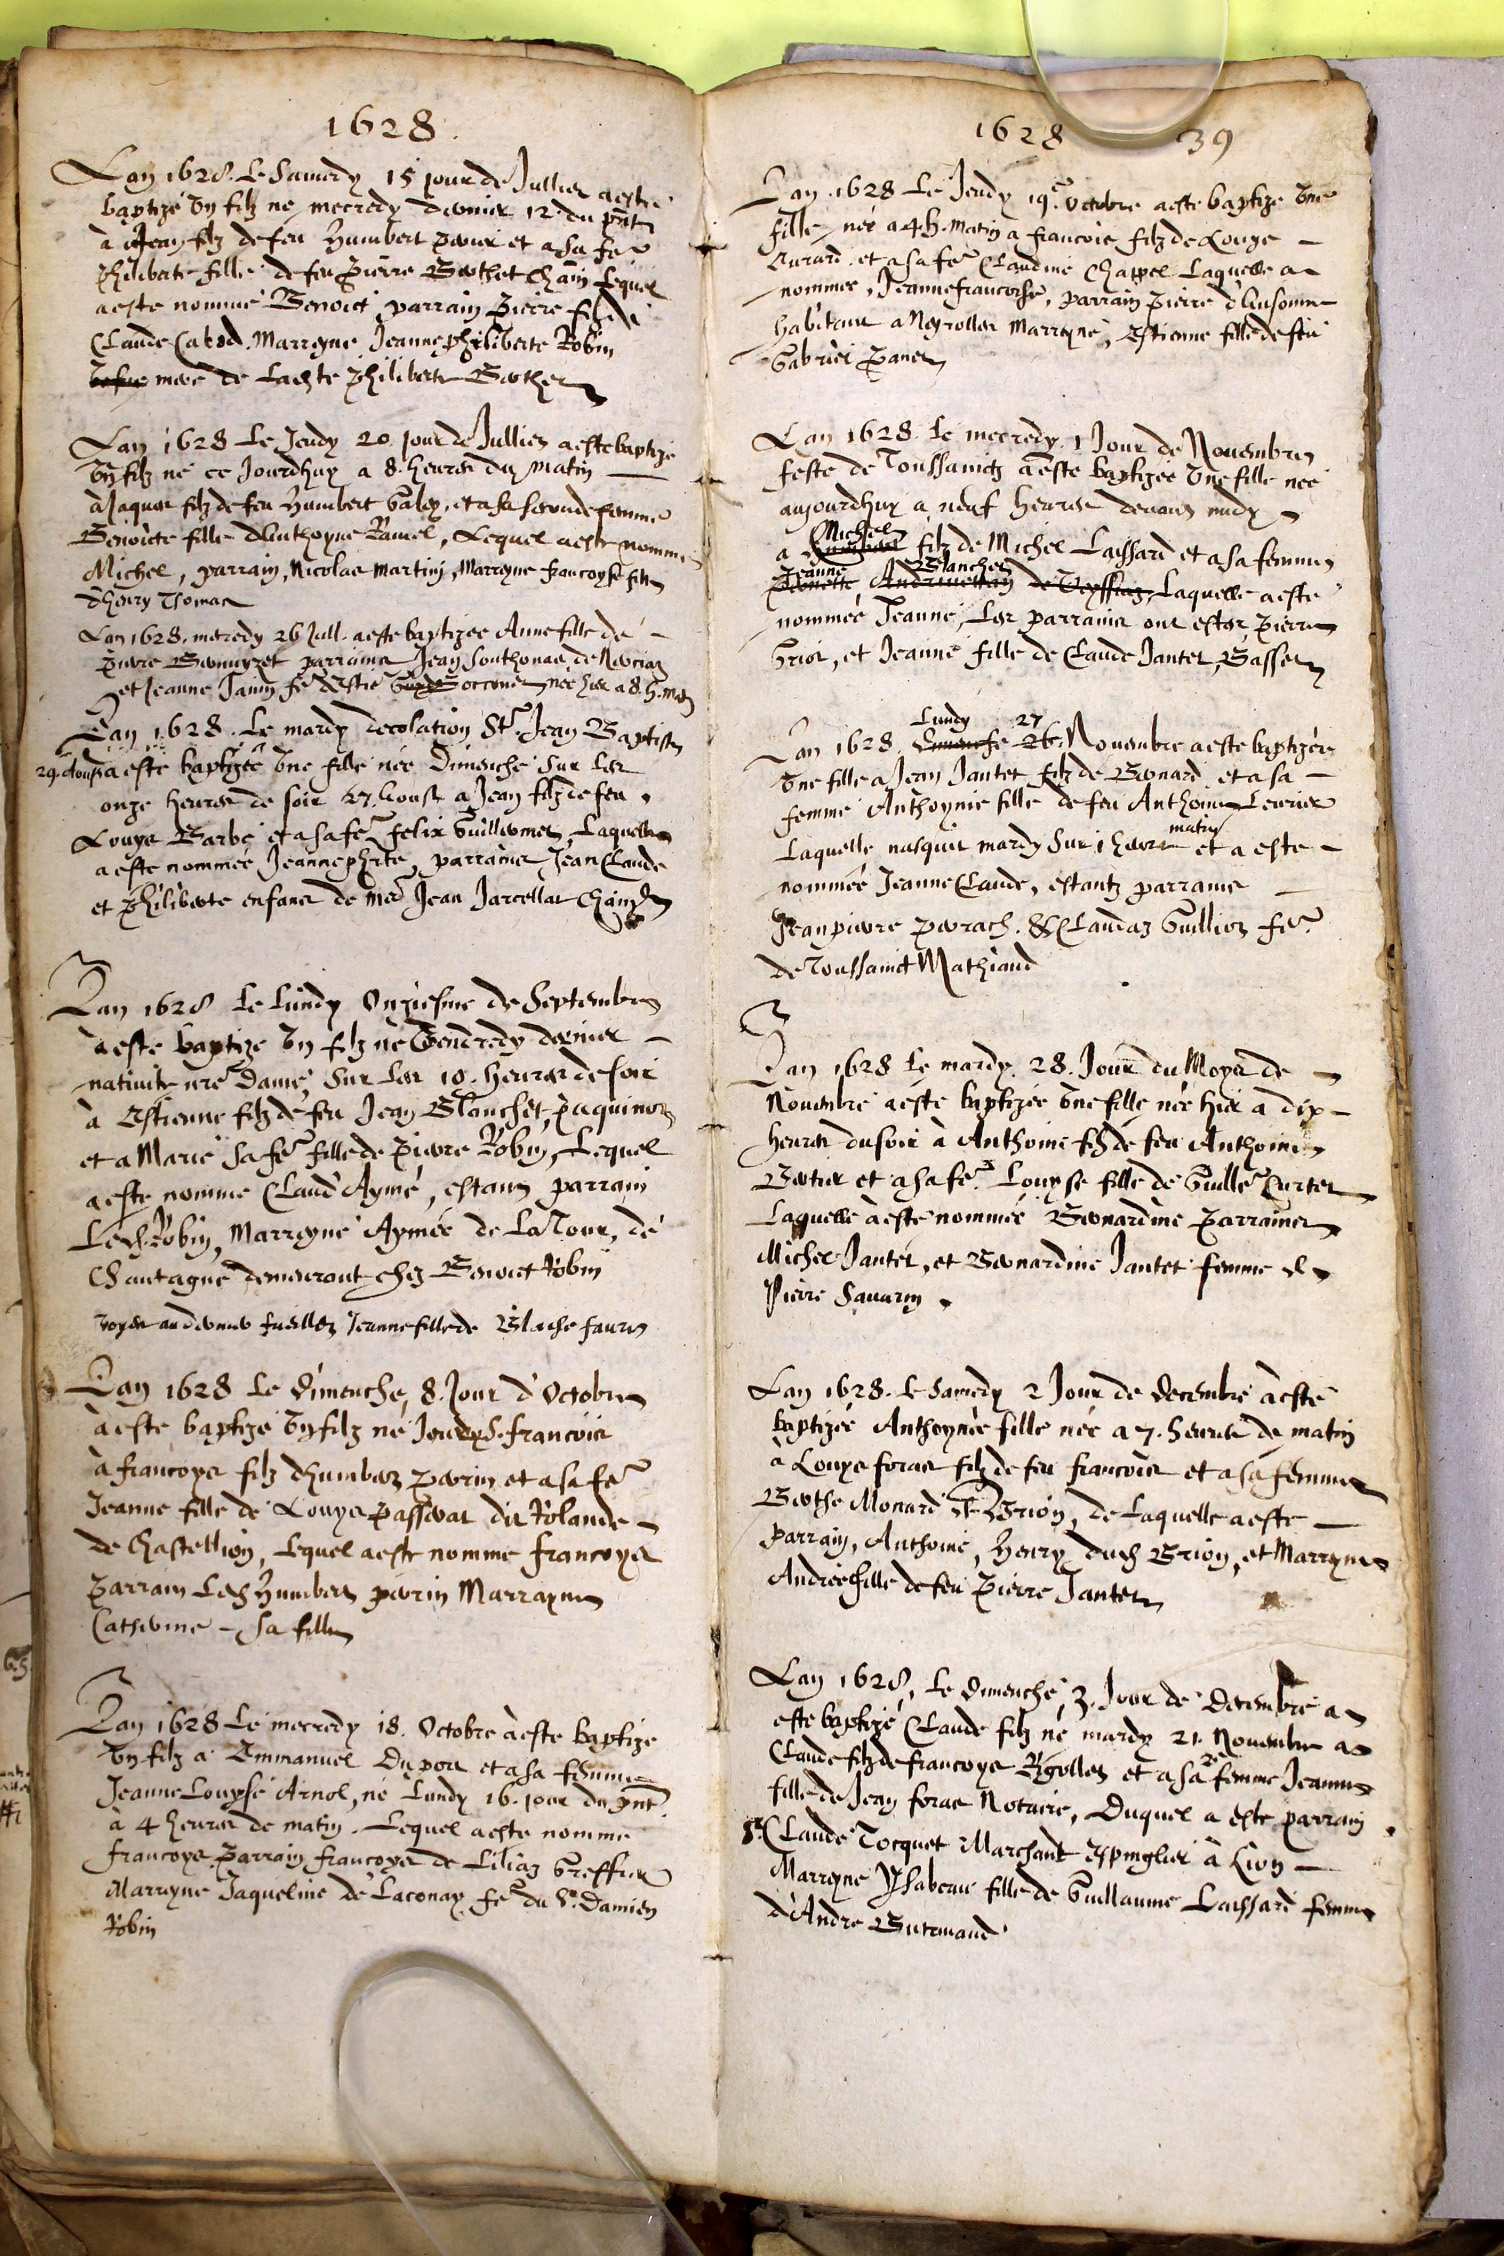 1628.
Lan 1628. Le Samedy 15 jour de Jullier a este
baptizé un filz ne mecredy dernier 12. du pnt
à Jean filz de feu Humbert et a sa fe
Philiberte fille de feu Pierre Berthet Lequel
a este nommé Benoict parrain Pierre filz de
Claude Marreyne Jeanne philiberte Robin
mere de Ladite philiberte Berthet
Lan 1628 Le Jeudy 20. jour de Jullier a este baptizé
un filz né ce Jourdhuy a 8. heures du matin
à Jaques filz de feu Humbert Galey, et a sa seconde femme
Benoicte fille dAnthoyne Ramel, Lequel a este nommé
Michel, parrain, Nicolas Martin, Marreyne francoyse fille
dhenry Thomas
Lan 1628. mecredy 26 Jull. a este baptizee Anne fille de
Pierre parrains Jean Southonas, de
et Jeanne Janin fe née hier a 8. h. matin
Lan 1628. Le mardy decolation St. Jean Baptiste
29. doust a este baptizée une fille née Dimenche sur les
onze heures de soir 27. Aoust a Jean filz de feu
Louys Barbe et a sa fe felix Guillermet, Laquelle
a este nommée Jeanne phrte, parrains Jean Claude
et Philiberte enfans de me Jean Jarcellat
Lan 1628 Le Lundy Onziesme de Septembre
a este baptizé un filz né Vendredy dernier
nativité nre Dame sur les 10. heures de soir
à Estienne filz de feu Jean Blanchet, paquinot
et a Marie sa fe fille de Pierre Robin, Lequel
a este nomme Claud' Aymé, estans parrain
Led Robin, Marreyne Aymée de LaTour, de
Chautagne demeurant chez Benoict Robin
voyes au dernier fueillet Jeanne fille de Blaise faure
Lan 1628 Le Dimenche, 8. Jour d'Octobre
à este baptizé un filz né Jeudy S. francois
à francoys filz dhumbert perrin et a sa fe
Jeanne fille de Louys Passerat dit Rolande
de Chastellion, Lequel a este nomme francoys
Parrain Led Humbert perrin Marrayne
Catherine sa fille
Lan 1628 Le mecredy 18. Octobre à este baptize
un filz a Emmanuel Duport et a sa femme
Jeanne Louyse Arnol, né Lundy 16. jour du pnt
à 4 heures de matin. Lequel a este nomme
francoys Parrain francoys de Liliaz Greffier
Marreyne Jaqueline de Laconay, fe du Sr. Damien
Robin
1628 39
Lan 1628 Le Jeudy 19e Octobre a este baptize une
fille née a 4 h. matin a francois filz de Louys
et a sa fe Claudine Chappel Laquelle a
nommée, Jeanne francoise, parrain Pierre
habitant a Neyrolles Marreyne, Estienne fille de feu
Gabriel Panet
Lan 1628. Le mecredy 1 Jour de Novembre
feste de Toussainctz a este baptizée une fille née
aujourdhuy a neuf heures devant midy
a Michel filz de Michel Laissard et a sa femme
Jeanne Blanchet Laquelle a este
nommée Jeanne, Les parrains ont estes Pierre
et Jeanne fille de Claude Jantet, Gasset
Lundy 27
Lan 1628. Dimenche 26. Novembre a este baptizée
une fille a Jean Jantet filz de Bernard et a sa
femme Anthoynie fille de feu Anthoine Levrier
Laquelle nasquit mardy sur 1 heure matin et a este
nommée Jeanne Claude, estantz parrains
Jean pierre perrach. & Claudaz Guillier fe
de Toussainct Mathiaud
Lan 1628 Le mardy. 28. Jour du Moys de
Novembre a este baptizée une fille née hier a dix
heures du soir à Anthoine filz de feu Anthoine
Bertier et a sa fe Louyse fille de Guille Curtet
Laquelle à este nommée Bernardine Parrains
Michel Jantet, et Bernardine Jantet femme de
Pierre Savarin.
Lan 1628. Le Samedy 2 Jour de Decembre à este
baptizée Anthoynée fille née a 7. heures de matin
à Louys foras filz de feu francois et a sa femme
Berthe Monard de Brion, de Laquelle a este
parrain, Anthoine, Henry dud Brion, et Marreyne
Andrée fille de feu Pierre Jantet
Lan 1628, Le Dimenche, 3. Jour de Decembre a
este baptizé Claude filz né mardy 21. Novembre a
Claude filz de francoys Rigollet et a sa 2e femme Jeanne
fille de Jean foras Notaire, Duquel a este parrain
Sr. Claude Tocquet Marchant espinglier à Lion
Marreyne Ysabeau fille de Guillaume Laissard femme
d'Andre Gutemaud